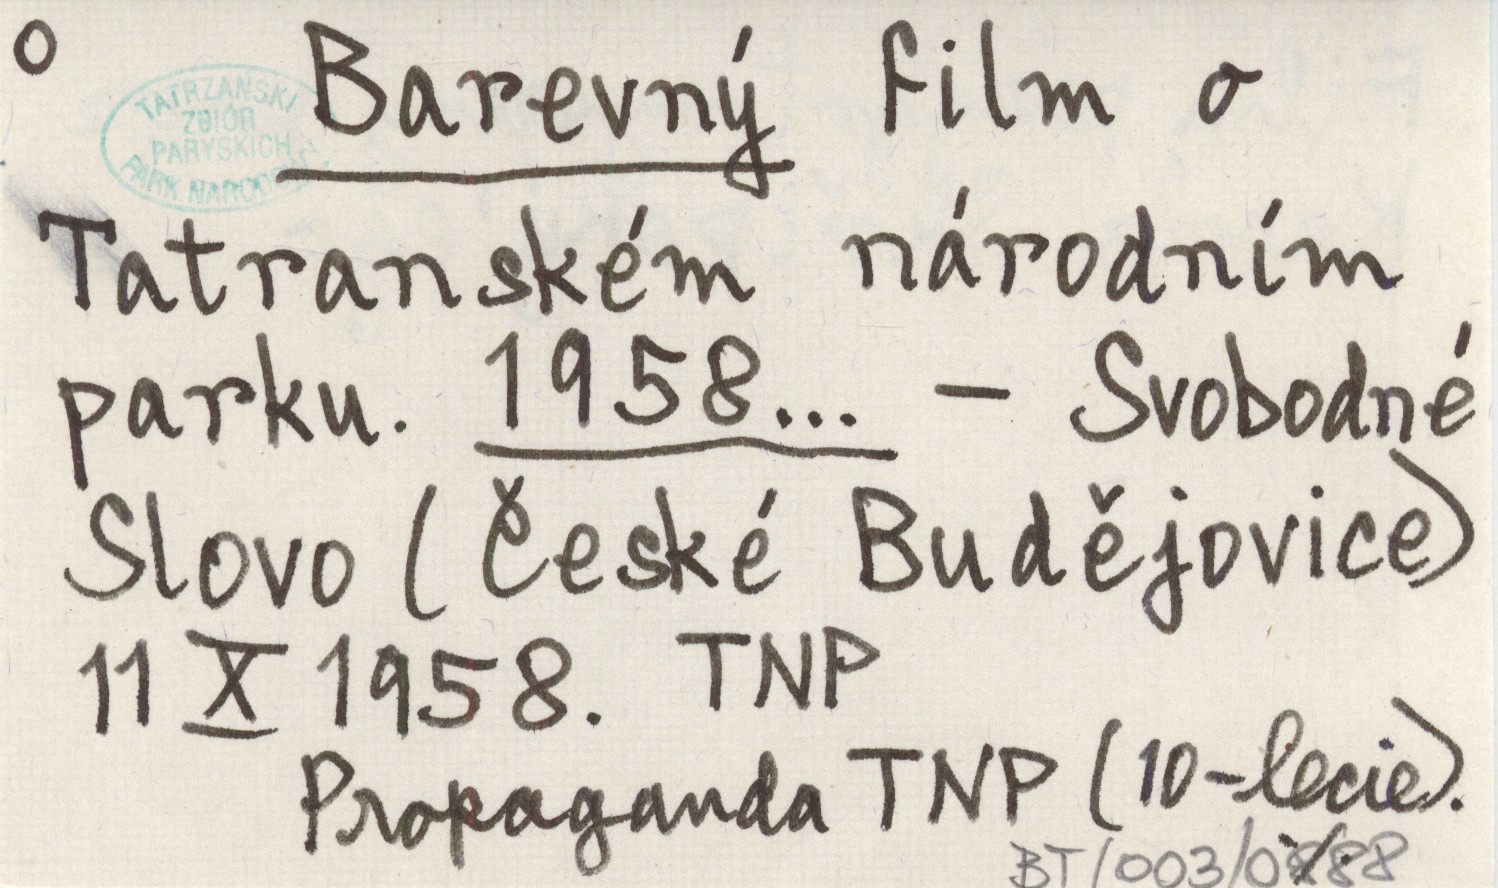 o Barevný film o
TATRZAŃSKI
ZBIÓR
PARYSKICH
PARK NARODOWY
Tatranském národním
parku. 1958... – Svobodné
Slovo (České Budějovice)
11 X 1958. TNP
Propaganda TNP (10-lecie).
BT/003/0888